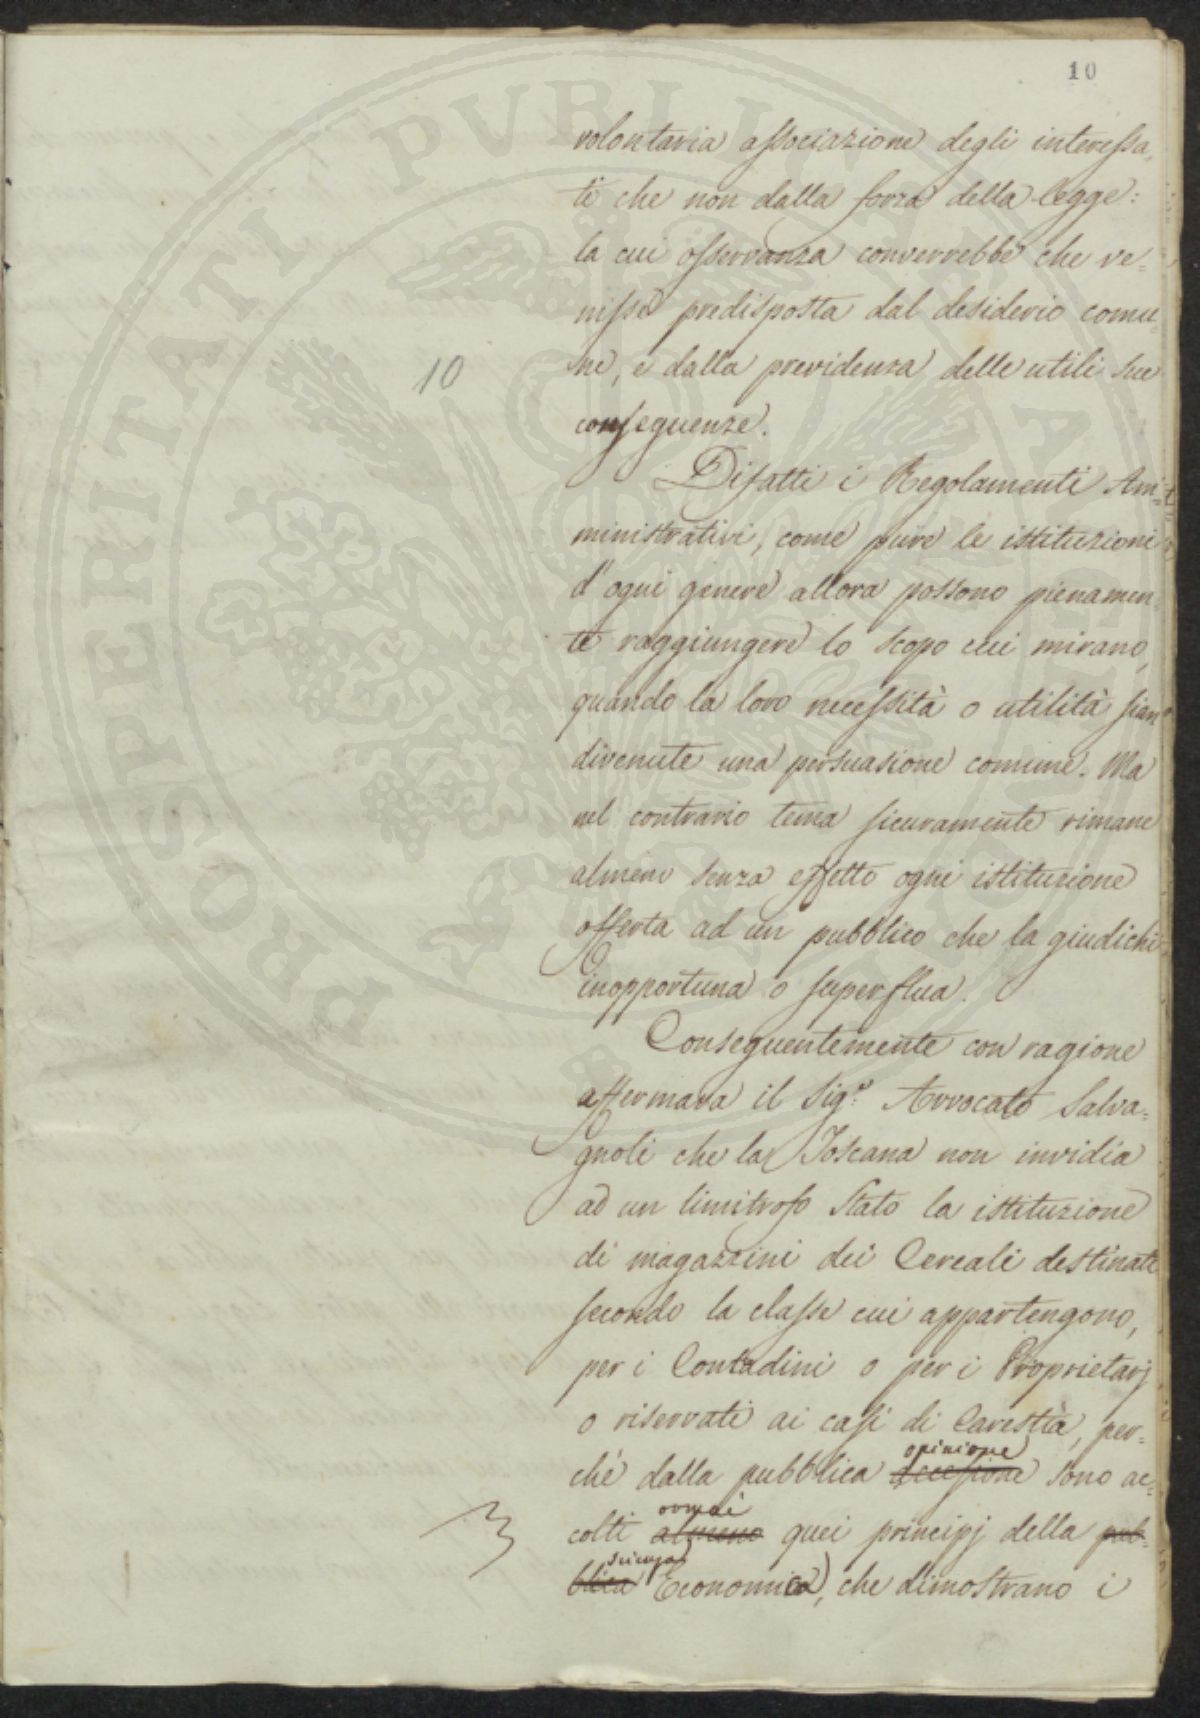 10
volontaria associazione degli interessa=
ti che non dalla forza della legge:
la cui osservanza converrebbe che ve=
nisse predisposta dal desiderio comu=
ne, e dalla previdenza delle utili sue
10
conseguenze.
Difatti i Regolamenti Am=
ministrativi, come pure le istituzioni
d'ogni genere allora possono pienamen=
te raggiungere lo scopo cui mirano,
quando la loro necessità o utilità sian
divenute una persuasione comune. Ma
nel contrario tema sicuramente rimane
almeno senza effetto ogni istituzione
offerta ad un pubblico che la giudichi
inopportuna o superflua.
Conseguentemente con ragione
affermava il Sigr. Avvocato Salva=
gnoli che la Toscana non invidia
ad un limitrofo Stato la istituzione
di magazzini dei Cereali destinati
secondo la classe cui appartengono,
per i Contadini o per i Proprietarj
o riservati ai casi di Carestia, per=
opinione
chè dalla pubblica sono ac=
ormai
colti almeno quei principj della pub=
scienza
blica Economica, che dimostrano i
PROSPERITATI PUBLICAE